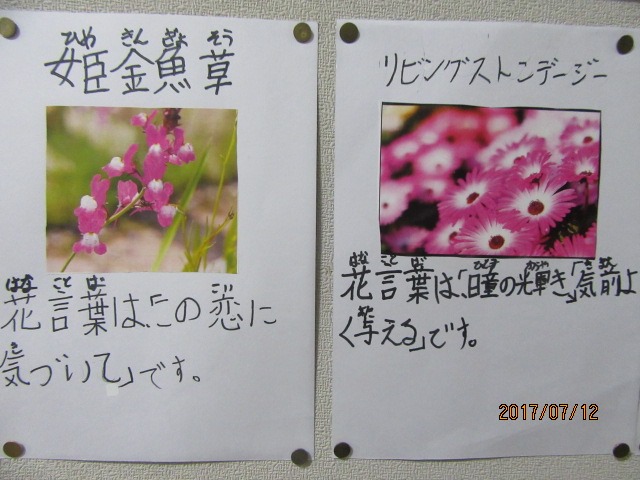 ひめ きん ぎょ そう
姫金魚草
はな こと ば こい
花言葉は、「この恋に
き
気づいて」です。
リビングストンデージー
はな こと ば ひとみ かがや き まえ
花言葉は、「瞳の輝き」「気前よ
あた
く与える」です。
2017/07/12